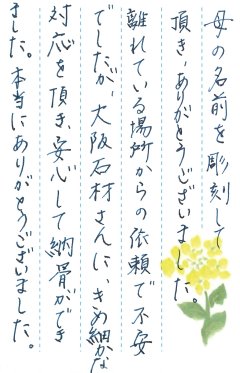 母の名前を彫刻して
頂き、ありがとうございました。
離れている場所からの依頼で不安
でしたが、大阪石材さんに、きめ細かな
対応を頂き、安心して納骨ができ
ました。本当にありがとうございました。